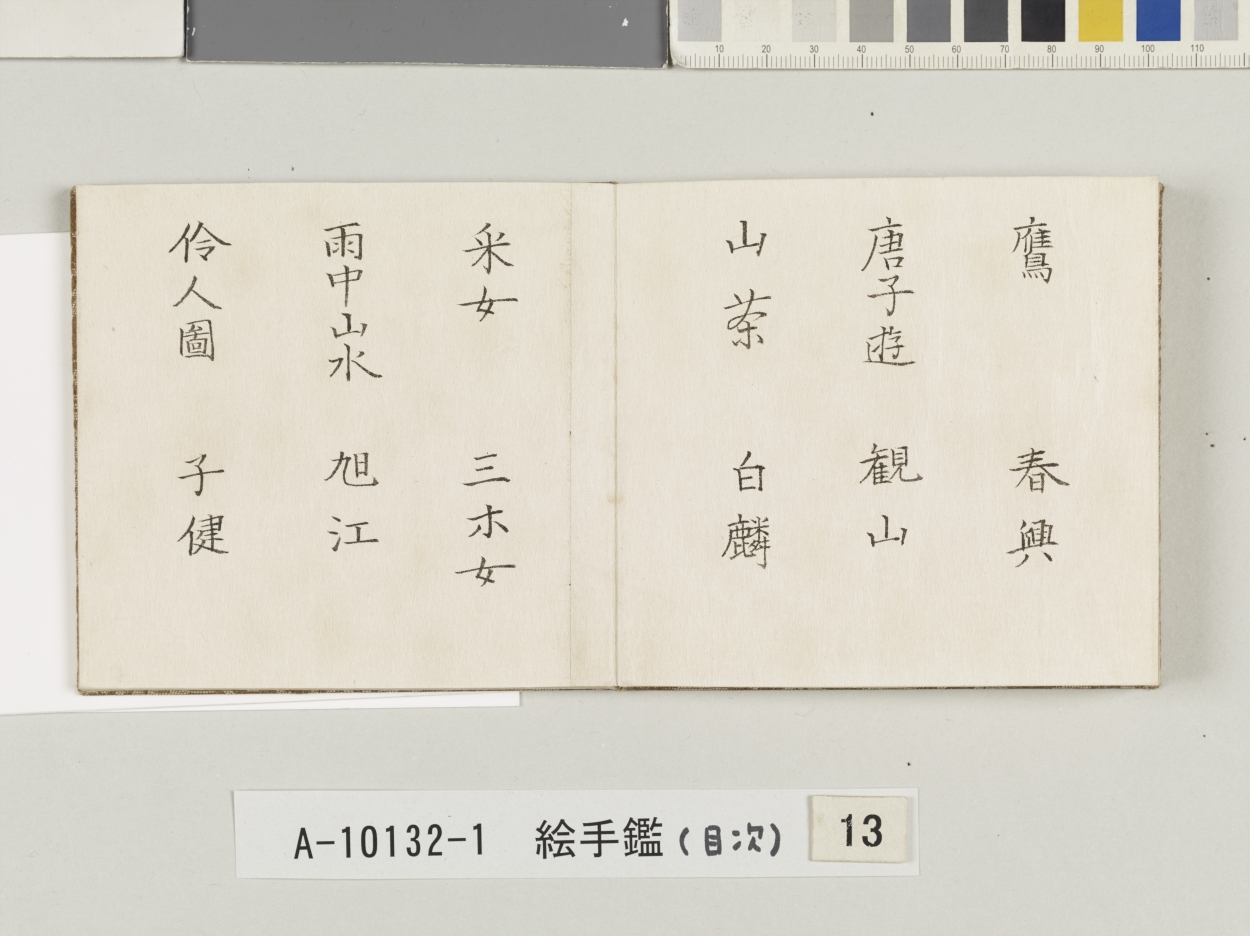 10 20 30 40 50 60 70 80 90 100 110
鷹 春興
唐子遊 観山
山茶 白麟
采女 三木女
雨中山水 旭江
伶人圖 子健
A-10132-1 絵手鑑(目次) 13